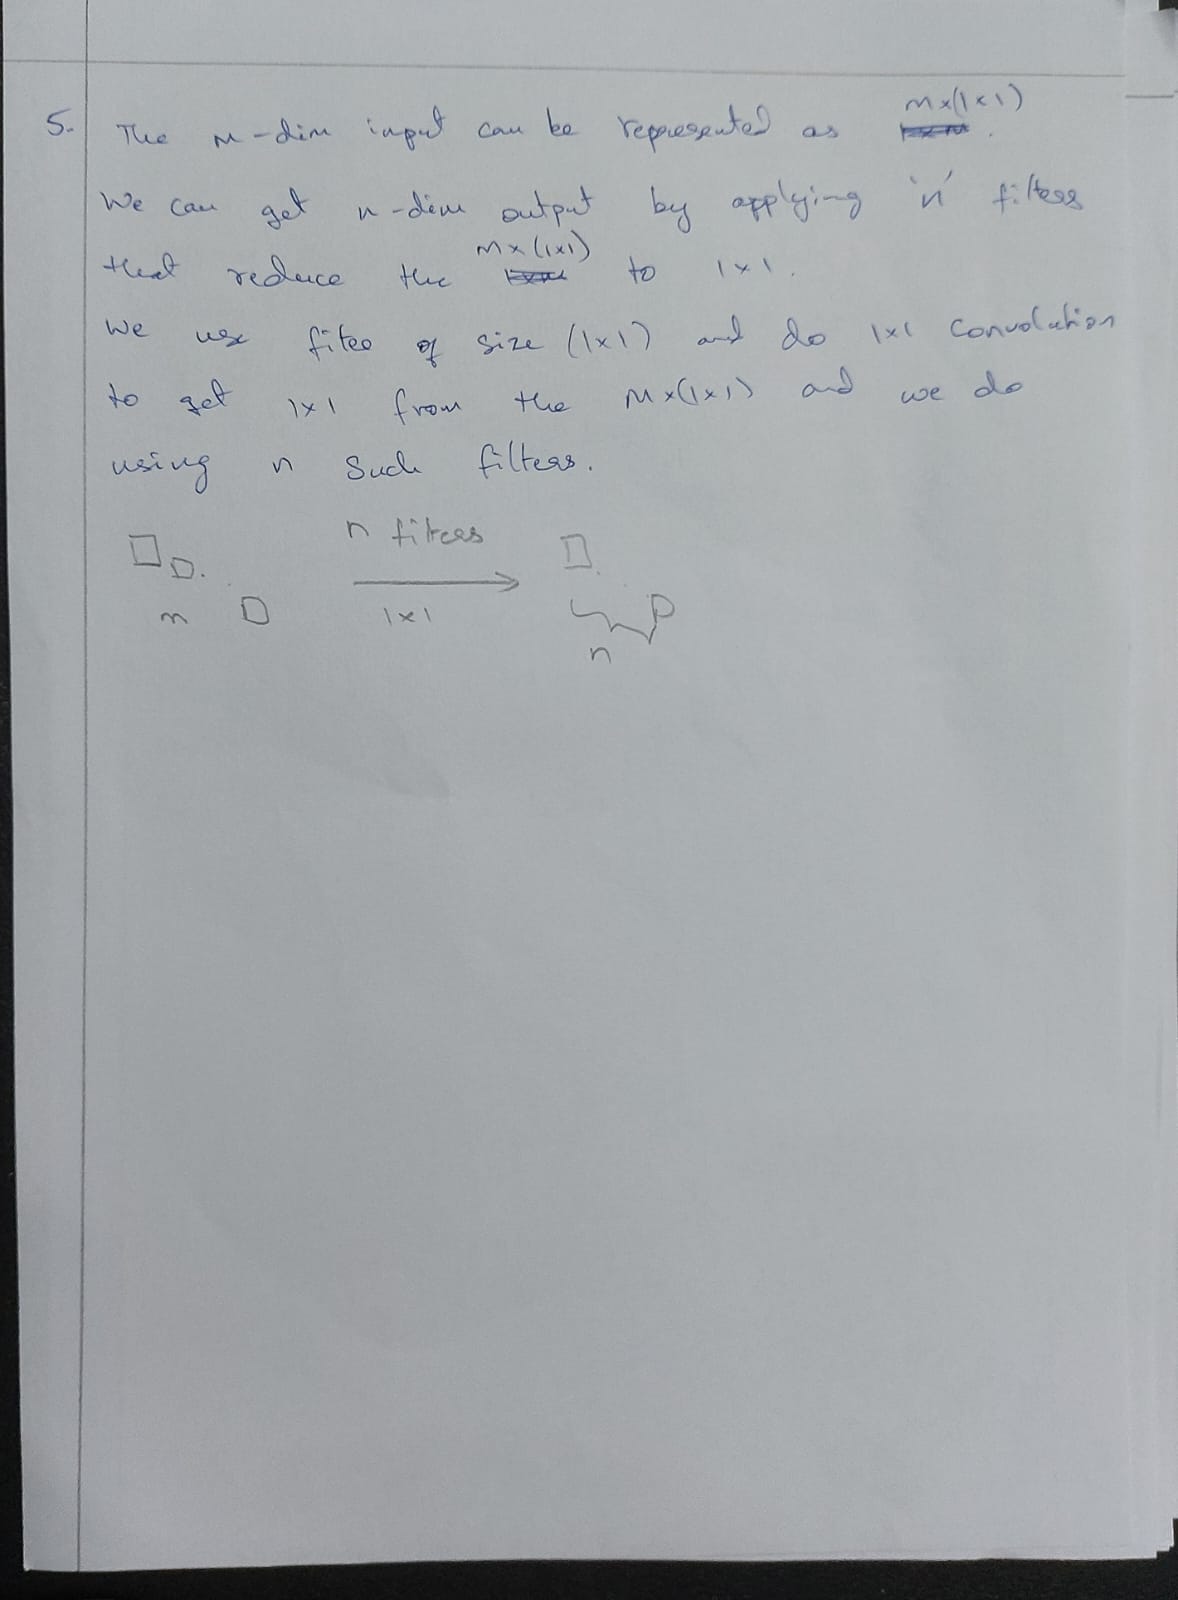 M×(1×1)
5. The M-dim input can be represented as .
We can get n-dim output by applying 'n' filters
M×(1×1)
that reduce the to 1×1.
We use filter of size (1×1) and do 1×1 convolution
to get 1×1 from the M×(1×1) and we do
using n such filters.
n filters
m 1×1
n